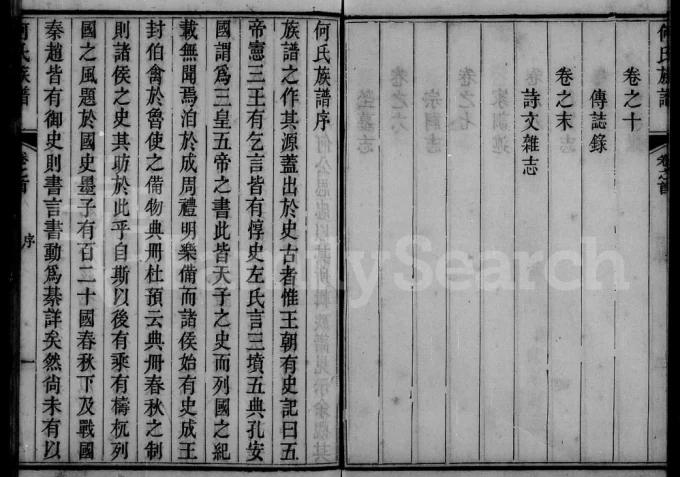 何氏族譜
卷之首
卷之十
傳誌錄
卷之末
詩文雜志
何氏族譜序
族譜之作其源蓋出於史古者惟王朝有史記曰五
帝憲三王有乞言皆有惇史左氏言三墳五典孔安
國謂爲三皇五帝之書此皆天子之史而列國之紀
載無聞焉洎於成周禮明樂備而諸侯始有史成王
封伯禽於魯使之備物典冊杜預云典冊春秋之制
則諸侯之史其昉於此乎自斯以後有乘有檮杌列
國之風題於國史墨子有百二十國春秋下及戰國
秦趙皆有御史則書言書動爲綦詳矣然尚未有以
何氏族譜
卷之首
序
一
FamilySearch